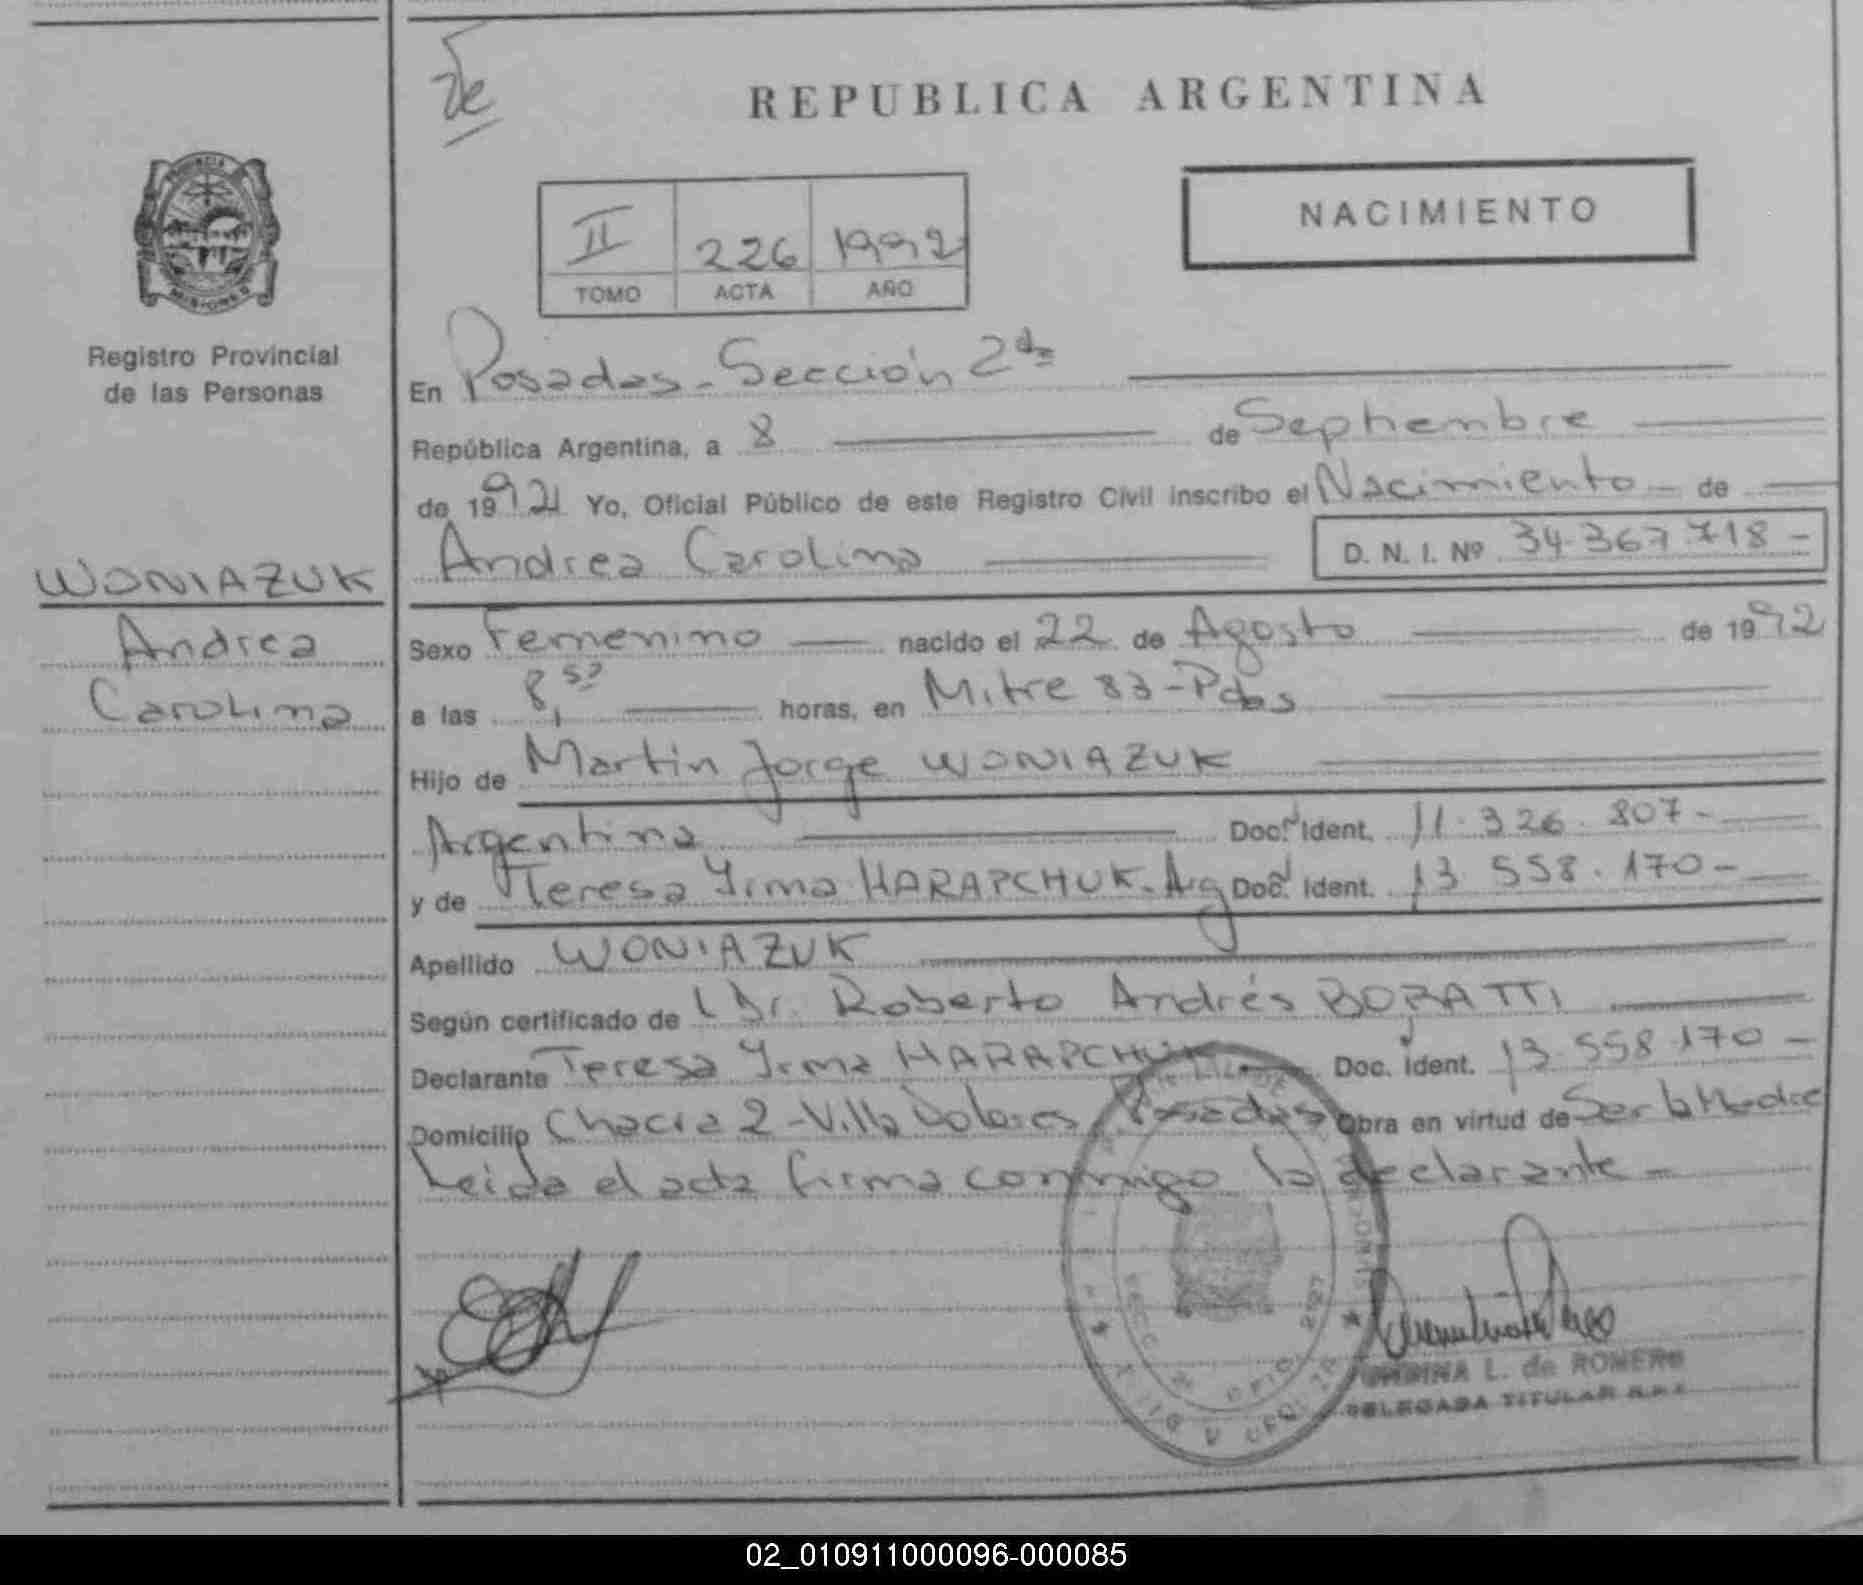 REPUBLICA ARGENTINA
NACIMIENTO
II 226 1992
TOMO ACTA AÑO
PROVINCIA
MISIONES
Registro Provincial
de las Personas
WONIAZUK
Andrea
Carolina
En Posadas - Sección 2da
República Argentina, a 8 de Septiembre
de 1992 Yo, Oficial Público de este Registro Civil inscribo el Nacimiento - de
Andrea Carolina D. N. I. Nº 34.367.718 -
Sexo Femenino nacido el 22 de Agosto de 1992
a las 8,50 horas, en Mitre 83 - Pdas
Hijo de Martin Jorge WONIAZUK
Argentina Doc. Ident. 11.326.807-
y de Teresa Yrma HARAPCHUK. Arg Doc. Ident. 13.558.170-
Apellido WONIAZUK
Según certificado de Dr. Roberto Andrés
Declarante Teresa Yrma HARAPCHUK - Doc. Ident. 13.558.170 -
Domicilio Chacra 2 - Villa Dolores Posadas Obra en virtud de Ser la Madre
Leida el acta firma conmigo la declarante -
L. de ROMERO
DELEGADA TITULAR R.P.P.
02_010911000096-000085